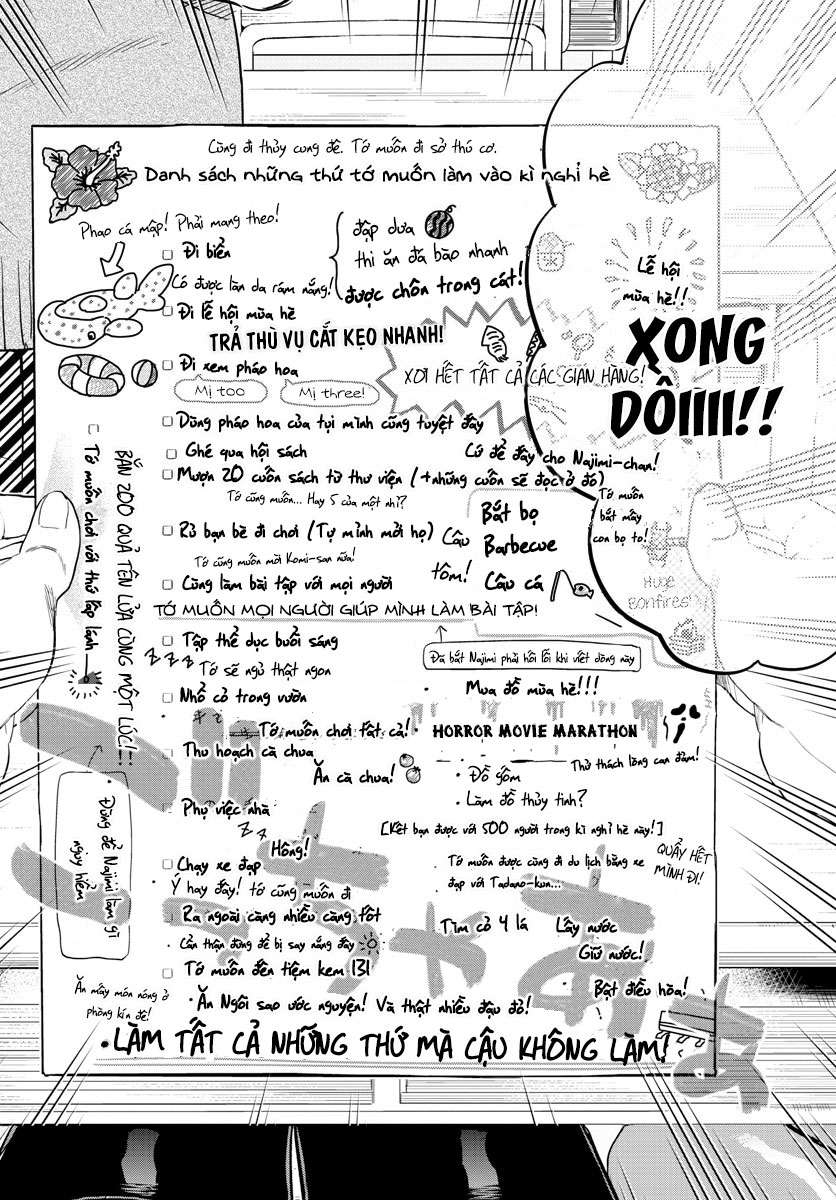 Cũng đi thủy cung đê. Tớ muốn đi sở thú cơ.
Danh sách những thứ tớ muốn làm vào kì nghỉ hè
Phao cá mập! Phải mang theo!
Đi biển
đập dưa
thi ăn đá bào nhanh
được chôn trong cát!
Có được làn da rám nắng!
Đi lễ hội mùa hè
TRẢ THÙ VỤ CẮT KẸO NHANH!
Lễ hội
mùa hè!!
XONG
DỒIIIII!!
Đi xem pháo hoa
Mị too
Mị three!
XƠI HẾT TẤT CẢ CÁC GIAN HÀNG!
Dùng pháo hoa của tụi mình cũng tuyệt đấy
Ghé qua hội sách
Cứ để đấy cho Najimi-chan!
Mượn 20 cuốn sách từ thư viện (+những cuốn sẽ đọc ở đó)
Tớ cũng muốn... Hay 5 của một nhỉ?
Tớ muốn
bắt mấy
con bọ to!
Rủ bạn bè đi chơi (Tự mình mời họ)
Tớ cũng muốn mời Komi-san nữa!
Câu
tôm!
Bắt bọ
Barbecue
Câu cá
HUGE
Bonfires!
Cùng làm bài tập với mọi người
TỚ MUỐN MỌI NGƯỜI GIÚP MÌNH LÀM BÀI TẬP!
Đã bắt Najimi phải hối lỗi khi viết dòng này
Tập thể dục buổi sáng
Z Z Z
Tớ sẽ ngủ thật ngon
Mua đồ mùa hè!!!
Nhổ cỏ trong vườn
Tớ muốn chơi tất cả!
HORROR MOVIE MARATHON
Thử thách lòng can đảm!
Thu hoạch cà chua
Ăn cà chua!
Đồ gốm
Làm đồ thủy tinh?
Phụ việc nhà
z z
Hông!
[Kết bạn được với 500 người trong kì nghỉ hè này!]
QUẨY HẾT
MÌNH ĐI!
Chạy xe đạp
Ý hay đấy! tớ cũng muốn đi
Tớ muốn được cùng đi du lịch bằng xe
đạp với Tadano-kun...
Ra ngoài càng nhiều càng tốt
Cẩn thận đừng để bị say nắng đấy
Tìm cỏ 4 lá
Lấy nước
Giữ nước!
Bật điều hòa!
Tớ muốn đến tiệm kem 131
Ăn mấy món nóng ở
phòng kín đê!
Ăn Ngôi sao ước nguyện! Và thật nhiều đậu đỏ!
LÀM TẤT CẢ NHỮNG THỨ MÀ CẬU KHÔNG LÀM!
BẮN 200 QUẢ TÊN LỬA CÙNG MỘT LÚC!
Tớ muốn chơi với thứ lấp lánh
Đừng để Najimi làm gì
nguy hiểm